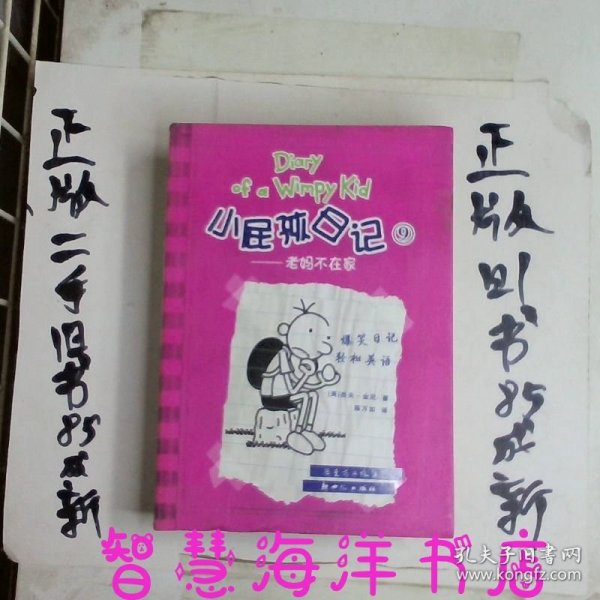 正版二手旧书85成新
Diary
of a Wimpy Kid
小屁孩日记⑨
——老妈不在家
爆笑日记
轻松英语
[美]杰夫·金尼 著
陈万如 译
新世纪出版社
正版旧书85成新
智慧海洋书店
孔夫子旧书网
www.kongfz.com